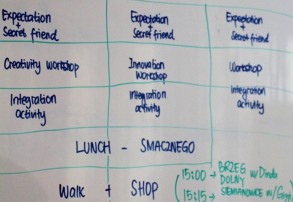 Expectation
+
Secret friend
Expectation
+
Secret friend
Expectation
+
Secret friend
Creativity workshop
Innovation
Workshop
Workshop
Integration
activity
Integration
activity
Integration
activity
LUNCH - SMACZNEGO
Walk + SHOP
15:00 → BRZEG w/
DOLNY
15:15 → w/